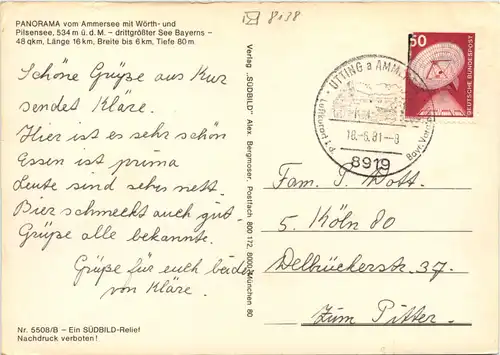 PANORAMA vom Ammersee mit Wörth- und
Pilsensee, 534 m ü. d. M. – drittgrößter See Bayerns –
48 qkm, Länge 16 km, Breite bis 6 km, Tiefe 80 m
8138
Schöne Grüße aus Kur
sendet Kläre.
Hier ist es sehr schön
Essen ist prima
Leute sind sehr nett.
Bier schmeckt auch gut
Grüße alle bekannte.
Grüße für euch beide
von Kläre.
Nr. 5508/B – Ein SÜDBILD-Relief
Nachdruck verboten!
Verlag „SÜDBILD" Alex. Bergmoser, Postfach 800 172, 8000 München 80
UTTING a AMM
Luftkurort
18.-6.81-8
8919
60
DEUTSCHE BUNDESPOST
Fam. P. Dott.
5. Köln 80
Delbrückerstr. 37.
Zum Pitter.